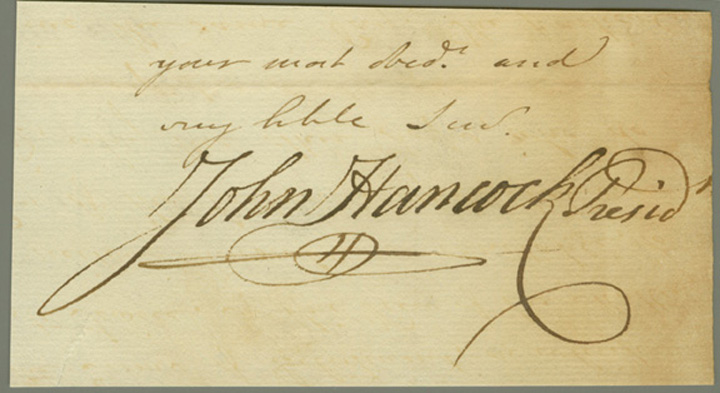 your most obed.t and
very hble Serv.
John Hancock Presid.t